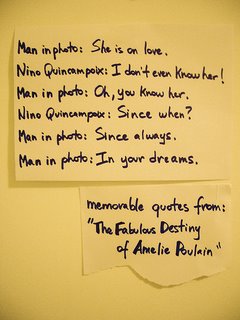 Man in photo: She is on love.
Nino Quincampoix: I don't even know her!
Man in photo: Oh, you know her.
Nino Quincampoix: Since when?
Man in photo: Since always.
Man in photo: In your dreams.
memorable quotes from:
"The Fabulous Destiny
of Amelie Poulain"